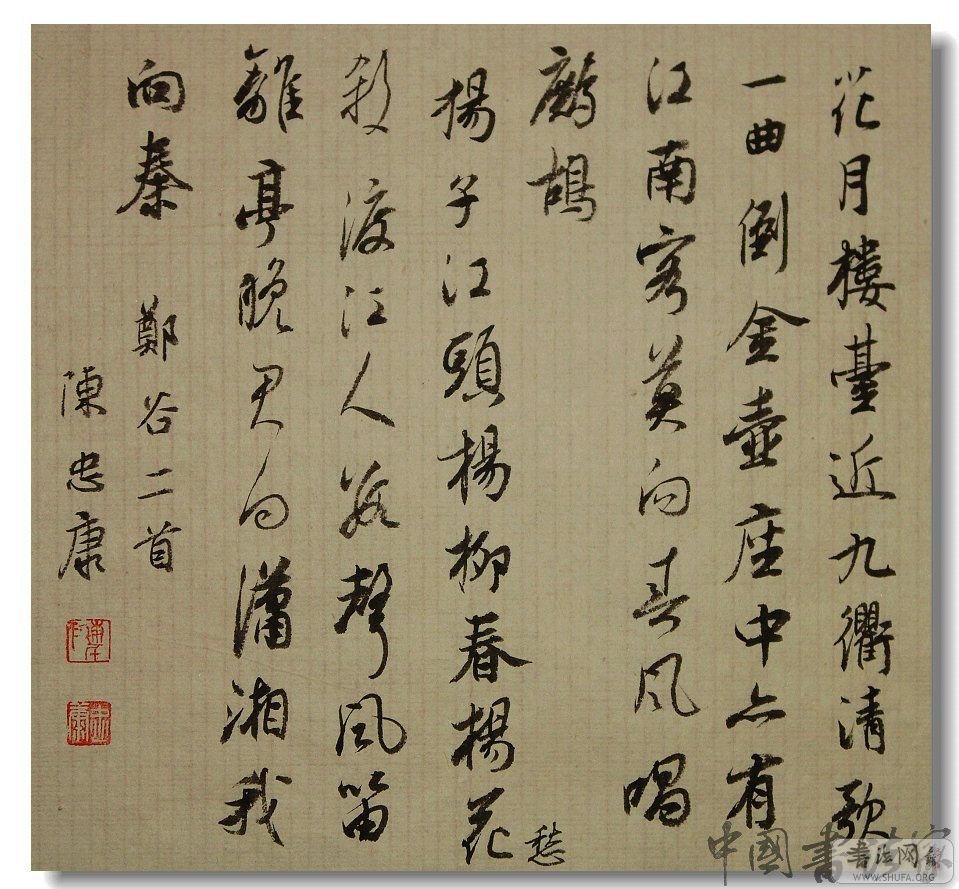 花月樓臺近九衢清歌
一曲倒金壺座中亦有
江南客莫向春風唱
鷓鴣
揚子江頭楊柳春楊花愁
殺渡江人數聲風笛
離亭晚君向瀟湘我
向秦 鄭谷二首
陳忠康
中國書
书法网
WWW.SHUFA.ORG